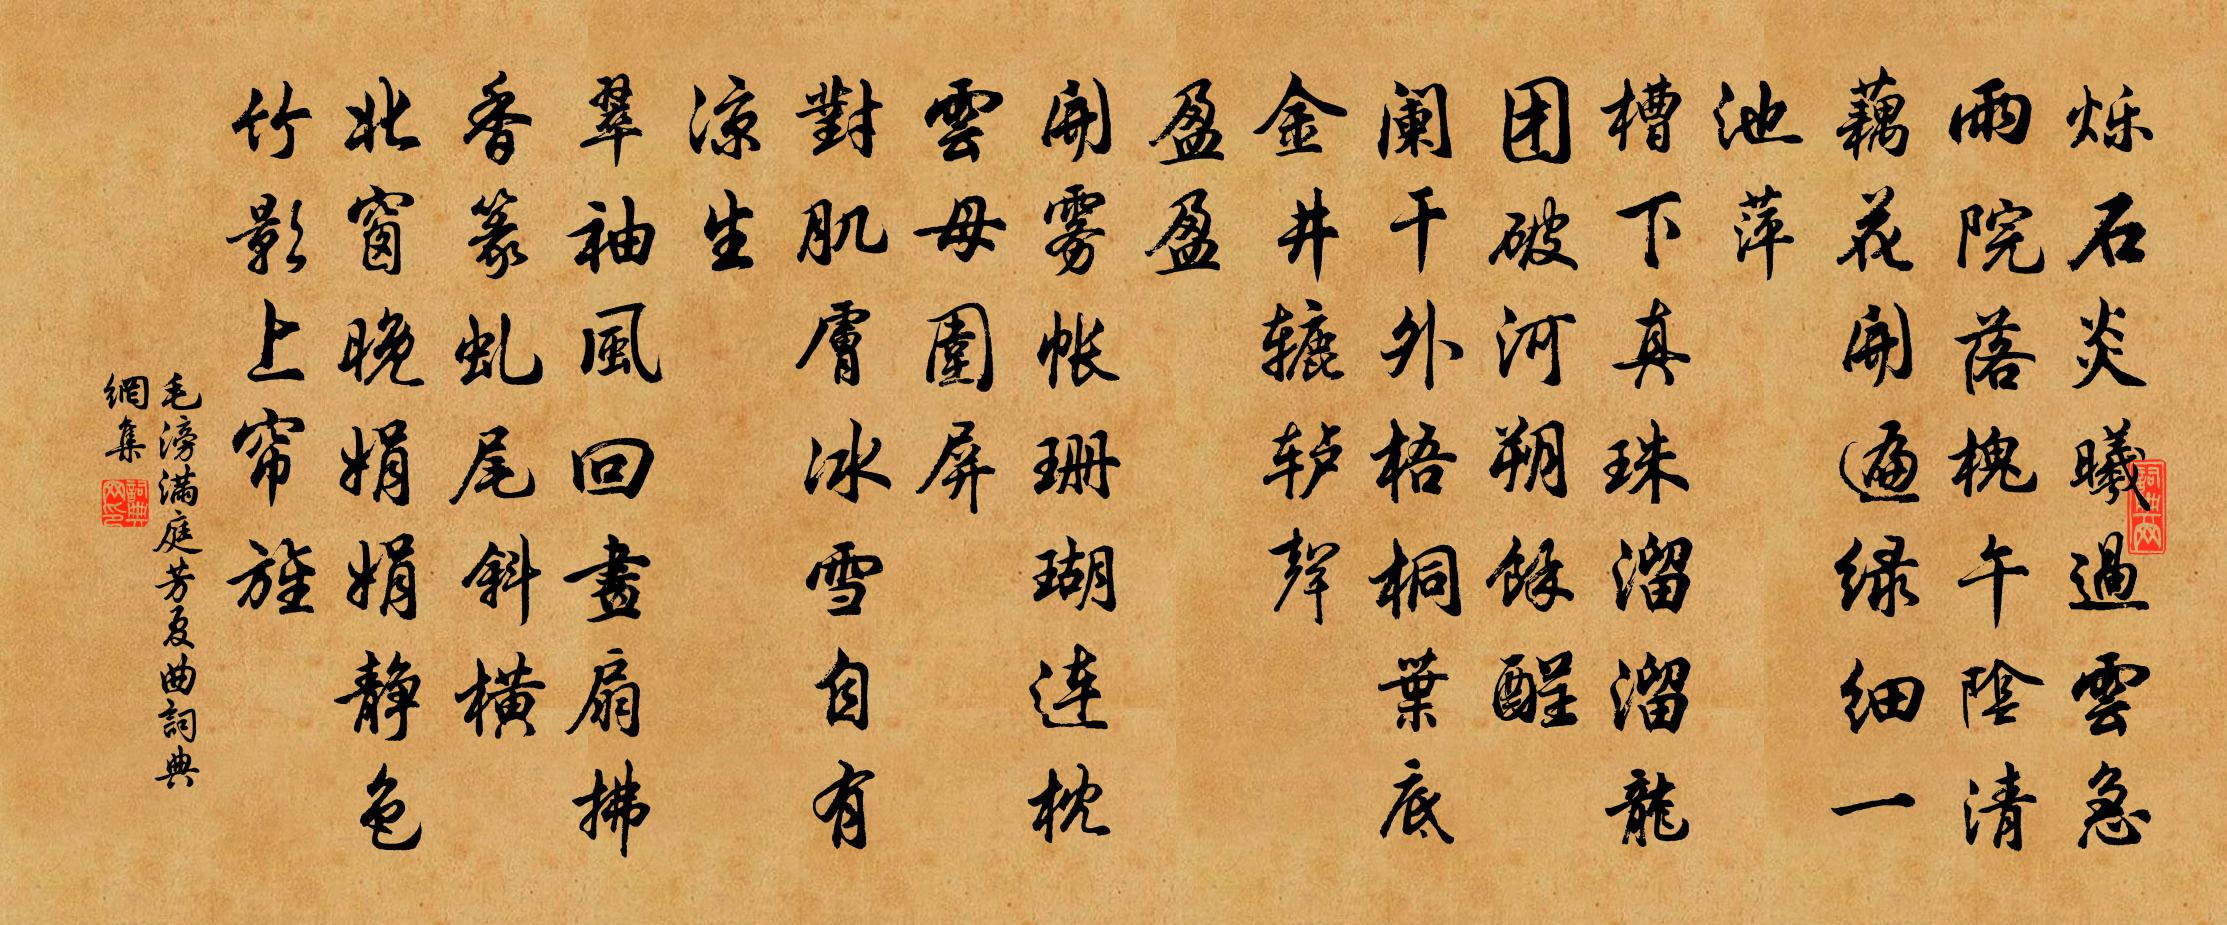 烁石炎曦過雲急
雨院落槐午陰清
藕花開遍绿细一
池萍
槽下真珠溜溜龍
团破河朔餘酲
阑干外梧桐葉底
金井辘轳聲
盈盈
開雾帐珊瑚连枕
雲母圍屏
對肌膚冰雪自有
凉生
翠袖風回畫扇拂
香篆虬尾斜橫
北窗晚娟娟静色
竹影上帘旌
毛滂满庭芳夏曲詞典
網集
詞典
网印
詞典网